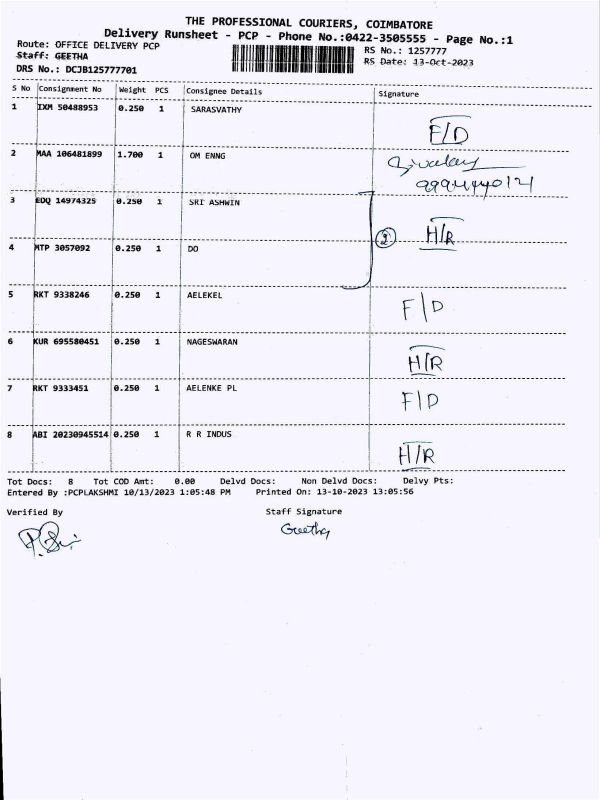 THE PROFESSIONAL COURIERS, COIMBATORE
Delivery Runsheet - PCP - Phone No.:0422-3505555 - Page No.:1
Route: OFFICE DELIVERY PCP RS No.: 1257777
Staff: GEETHA RS Date: 13-Oct-2023
DRS No.: DCJB125777701
S No Consignment No Weight PCS Consignee Details Signature
1 IXM 50488953 0.250 1 SARASVATHY
F/D
2 MAA 106481899 1.700 1 OM ENNG
3 EDQ 14974325 0.250 1 SRI ASHWIN
② H/R
4 MTP 3057092 0.250 1 DO
5 RKT 9338246 0.250 1 AELEKEL
F/D
6 KUR 695580451 0.250 1 NAGESWARAN
H/R
7 RKT 9333451 0.250 1 AELENKE PL
F/D
8 ABI 20230945514 0.250 1 R R INDUS
H/R
Tot Docs: 8 Tot COD Amt: 0.00 Delvd Docs: Non Delvd Docs: Delvy Pts:
Entered By :PCPLAKSHMI 10/13/2023 1:05:48 PM Printed On: 13-10-2023 13:05:56
Verified By Staff Signature
Geetha